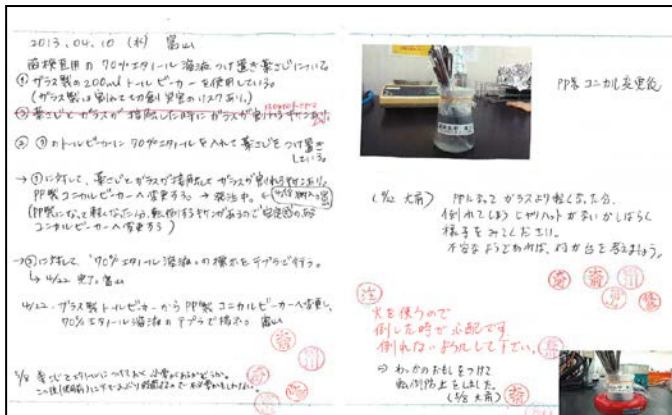 2013.04.10 (水) 富山
菌検査用の70%エタノール溶液つけ置き薬さじについて。
① ガラス製の200mlトールビーカーを使用している。
(ガラス製は割れて切創災害のリスクあり。)
② 薬さじとガラスが接触した時にガラスが割れる
② ①のトールビーカーに70%エタノールを入れて薬さじをつけ置き
している。
→ ①に対して、薬さじとガラスが接触してガラスが割れるキケンあり。
PP製コニカルビーカーへ変更する。→ 発注中。
(PP製になって軽くなった分、転倒するキケンがあるので安定感のある
コニカルビーカーへ変更する)
→ ②に対して "70%エタノール溶液"の標示をテプラで行う。
↳ 4/22 完了。富山
4/22. ガラス製トールビーカーからPP製コニカルビーカーへ変更し、
70%エタノール溶液のテプラで標示。 富山
5/8 薬さじをエタノールにつけておく必要があるかどうか。
PP製コニカル変更後
(5/2 大角) PPになってガラスより軽くなった分、
倒れてしまうヒヤリハットがないかしばらく
様子をみてください。
不安なようであれば、何か台を考えましょう。
注
火を使うので
倒した時が心配です
倒れないようにして下さい。
⇒ わっかのおもしをつけて
転倒防止をしました。
(5/8 大角)